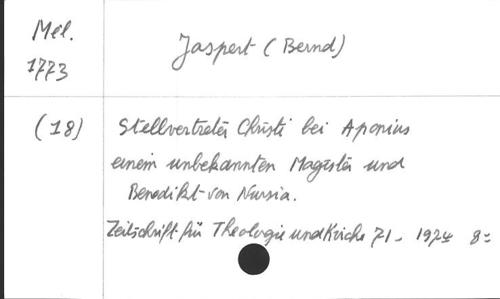 Mél.
1773
Jaspert (Bernd)
(18)
Stellvertreter Christi bei Aponius
einem unbekannten Magister und
Benedikt von Nursia.
Zeitschrift für Theologie und Kirche 71 - 1974 8º